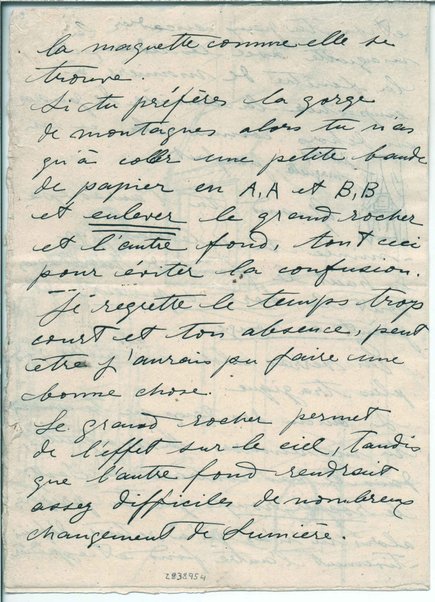 la maquette comme elle se
trouve.
Si tu préfères la gorge
de montagnes alors tu n'as
qu'à coller une petite bande
de papier en A,A et B,B
et enlever le grand rocher
et l'autre fond, tout ceci
pour éviter la confusion.
Je regrette le temps trop
court et ton absence, peut
être j'aurais pu faire une
bonne chose.
Le grand rocher permet
de l'effet sur le ciel, tandis
que l'autre fond rendrait
assez difficiles de nombreux
changement de lumière.
2838954